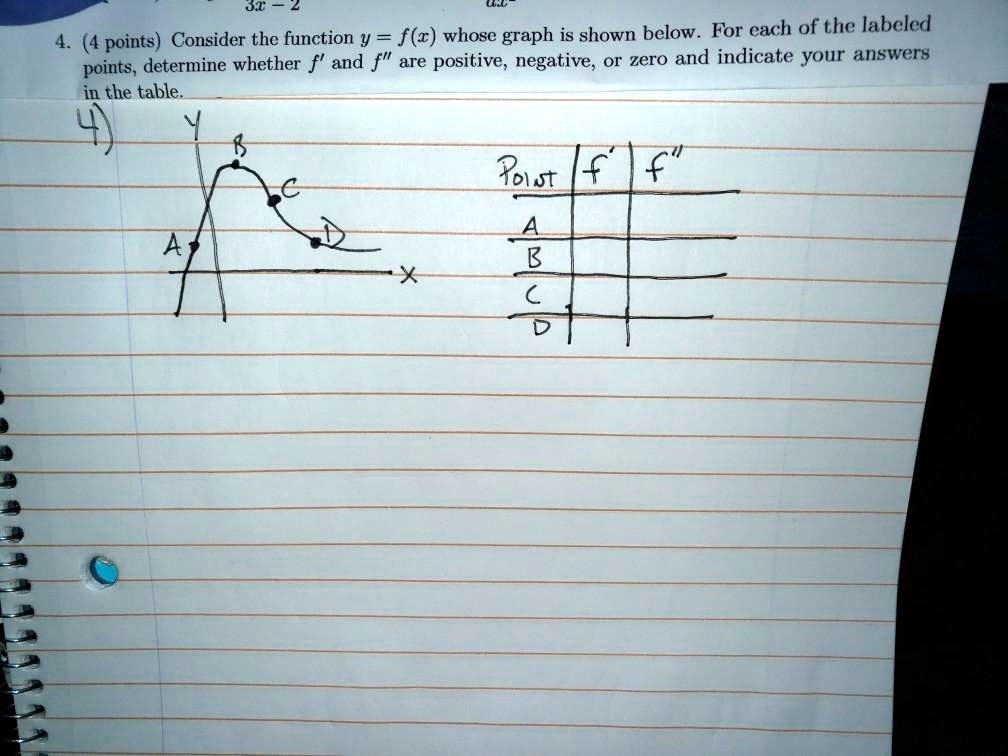 3x − 2
4. (4 points) Consider the function y = f(x) whose graph is shown below. For each of the labeled
points, determine whether f' and f" are positive, negative, or zero and indicate your answers
in the table.
4)
Y
B
C
A
D
X
Point f' f"
A
B
C
D